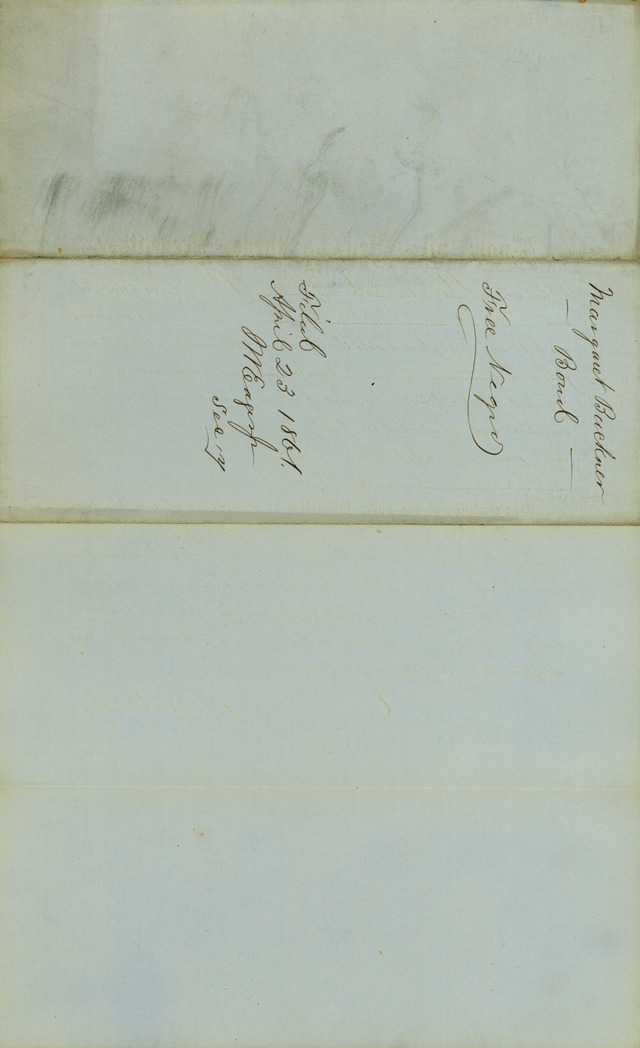 Margaret Buckner
— Bond —
Free Negro
Filed
April 23 1861.